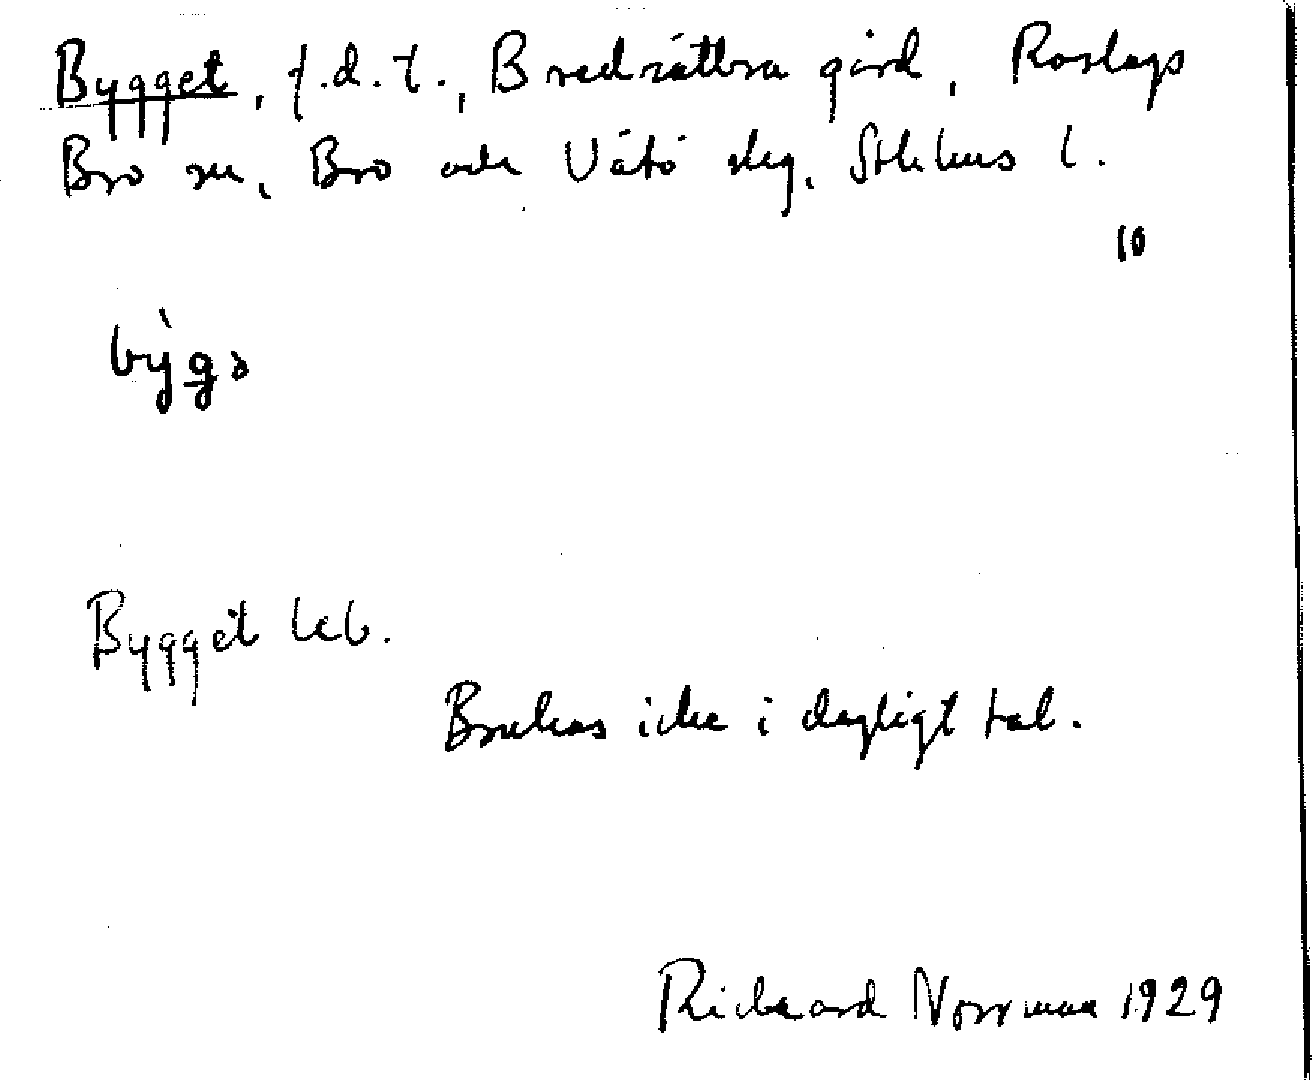 Bygget, f.d.t., Bredsättra gård, Roslags
Bro sn, Bro och Vätö skg, Sthlms l.
10
bỳgə
Bygget
Brukas icke i dagligt tal.
Rickard Norrman 1929